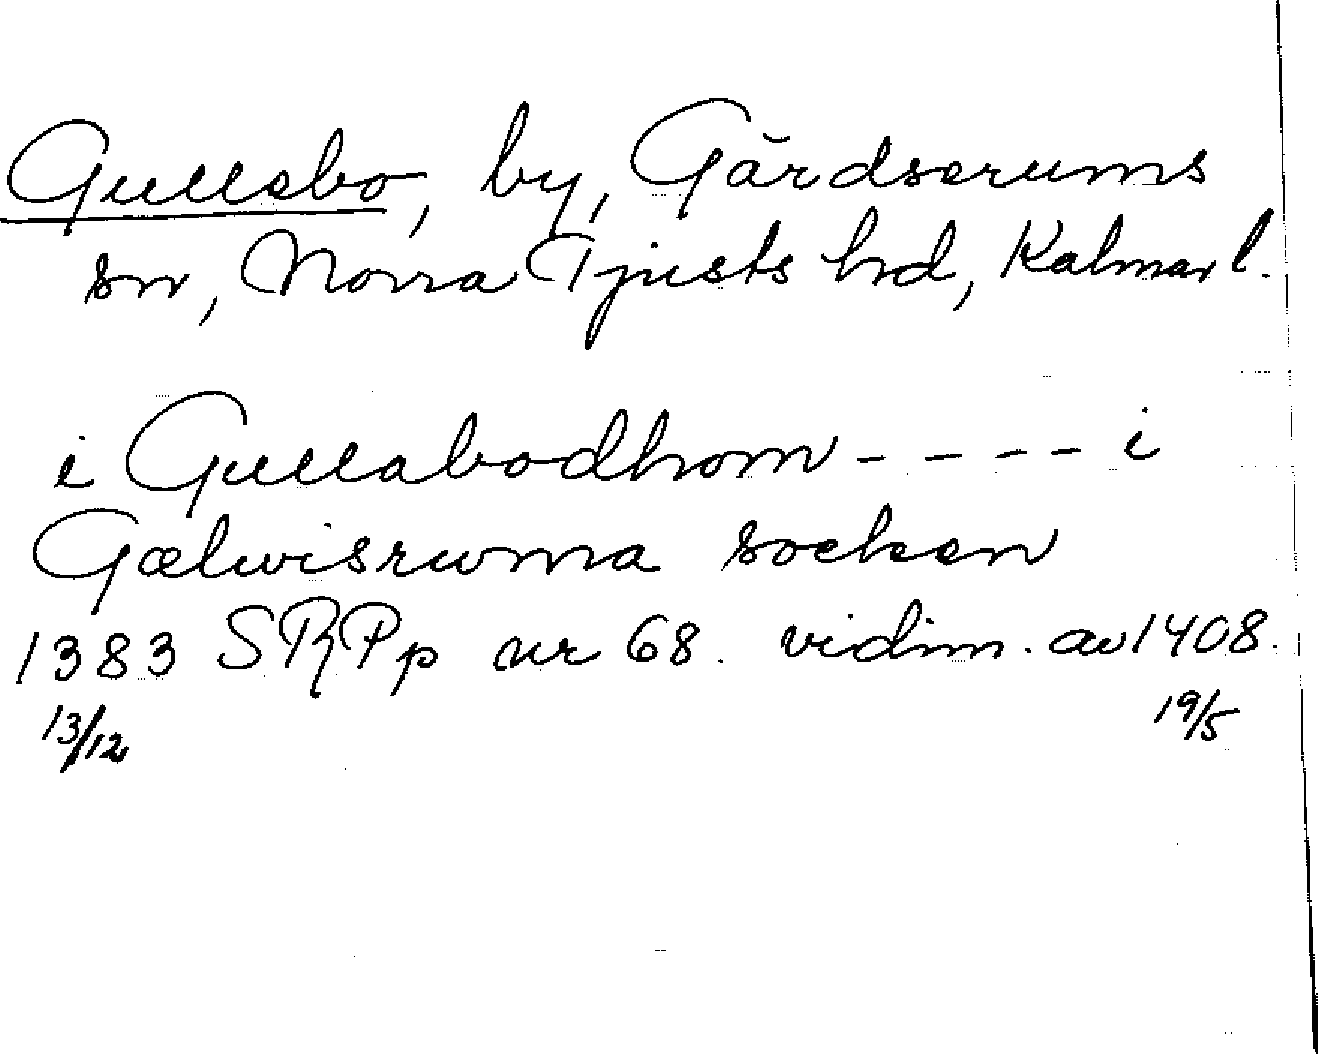 Gullebo, by, Gärdserums
sn, Norra Tjusts hd, Kalmar l.
i Gullabodhom - - - - i
Gælwisrwma socken
1383 SRPp nr 68. vidim. av 1408.
13/12 19/5